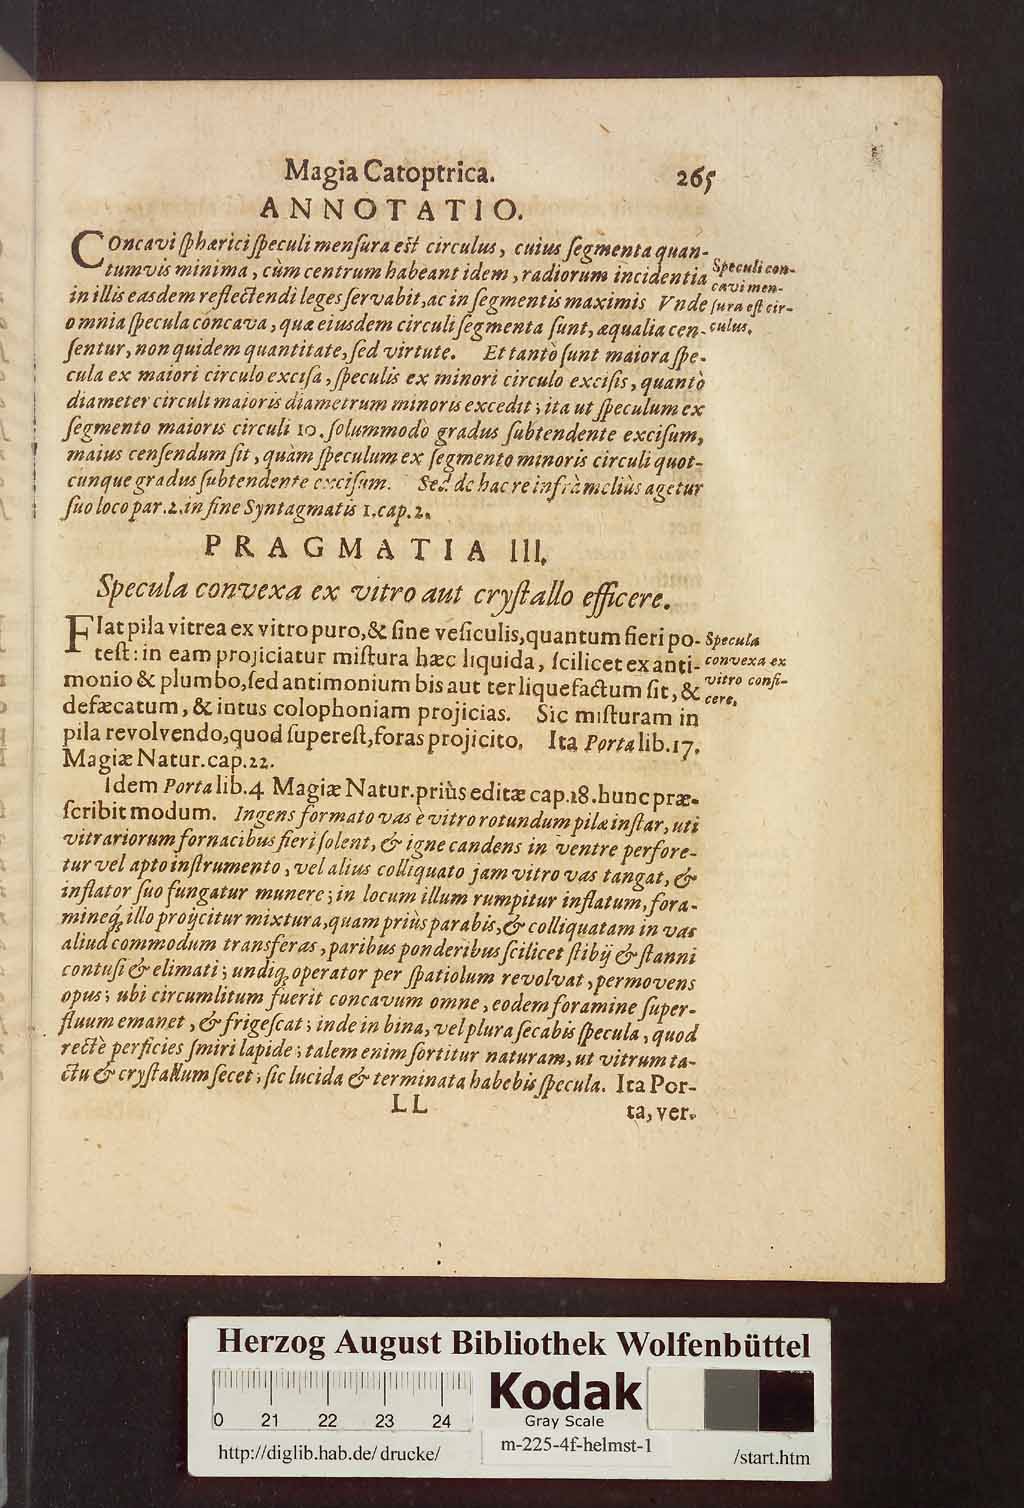 Magia Catoptrica. 265
ANNOTATIO.
COncavi ſphærici ſpeculi menſura eſt circulus, cuius ſegmenta quan-
tumvis minima, cùm centrum habeant idem, radiorum incidentia
in illis easdem reflectendi leges ſervabit, ac in ſegmentis maximis Vnde
omnia ſpecula concava, quæ eiusdem circuli ſegmenta ſunt, æqualia cen-
ſentur, non quidem quantitate, ſed virtute. Et tantò ſunt maiora ſpe-
cula ex maiori circulo exciſa, ſpeculis ex minori circulo exciſis, quantò
diameter circuli maioris diametrum minoris excedit; ita ut ſpeculum ex
ſegmento maioris circuli 10. ſolummodò gradus ſubtendente exciſum,
maius cenſendum ſit, quàm ſpeculum ex ſegmento minoris circuli quot-
cunque gradus ſubtendente exciſum. Sed de hac re infrà meliùs agetur
ſuo loco par. 2. in fine Syntagmatis 1. cap. 2.
Speculi con-
cavi men-
ſura eſt cir-
culus.
PRAGMATIA III.
Specula convexa ex vitro aut cryſtallo efficere.
FIat pila vitrea ex vitro puro, & ſine veſiculis, quantum fieri po-
teſt: in eam projiciatur miſtura hæc liquida, ſcilicet ex anti-
monio & plumbo, ſed antimonium bis aut ter liquefactum ſit, &
defæcatum, & intus colophoniam projicias. Sic miſturam in
pila revolvendo, quod ſupereſt, foras projicito. Ita Porta lib. 17.
Magiæ Natur. cap. 22.
Specula
convexa ex
vitro confi-
cere.
Idem Porta lib. 4 Magiæ Natur. priùs editæ cap. 18. hunc præ-
ſcribit modum. Ingens formato vas è vitro rotundum pilæ inſtar, uti
vitrariorum fornacibus fieri ſolent, & igne candens in ventre perfore-
tur vel apto inſtrumento, vel alius colliquato jam vitro vas tangat, &
inflator ſuo fungatur munere; in locum illum rumpitur inflatum, fora-
mineq́; illo proijcitur mixtura, quam priùs parabis, & colliquatam in vas
aliud commodum transferas, paribus ponderibus ſcilicet ſtibij & ſtanni
contuſi & elimati; undiq; operator per ſpatiolum revolvat, permovens
opus; ubi circumlitum fuerit concavum omne, eodem foramine ſuper-
fluum emanet, & frigeſcat; inde in bina, vel plura ſecabis ſpecula, quod
rectè perficies ſmiri lapide; talem enim ſortitur naturam, ut vitrum ta-
ctu & cryſtallum ſecet; ſic lucida & terminata habebis ſpecula. Ita Por-
LL ta, ver.
Herzog August Bibliothek Wolfenbüttel
0 21 22 23 24
Kodak
Gray Scale
http://diglib.hab.de/ drucke/
m-225-4f-helmst-1
/start.htm